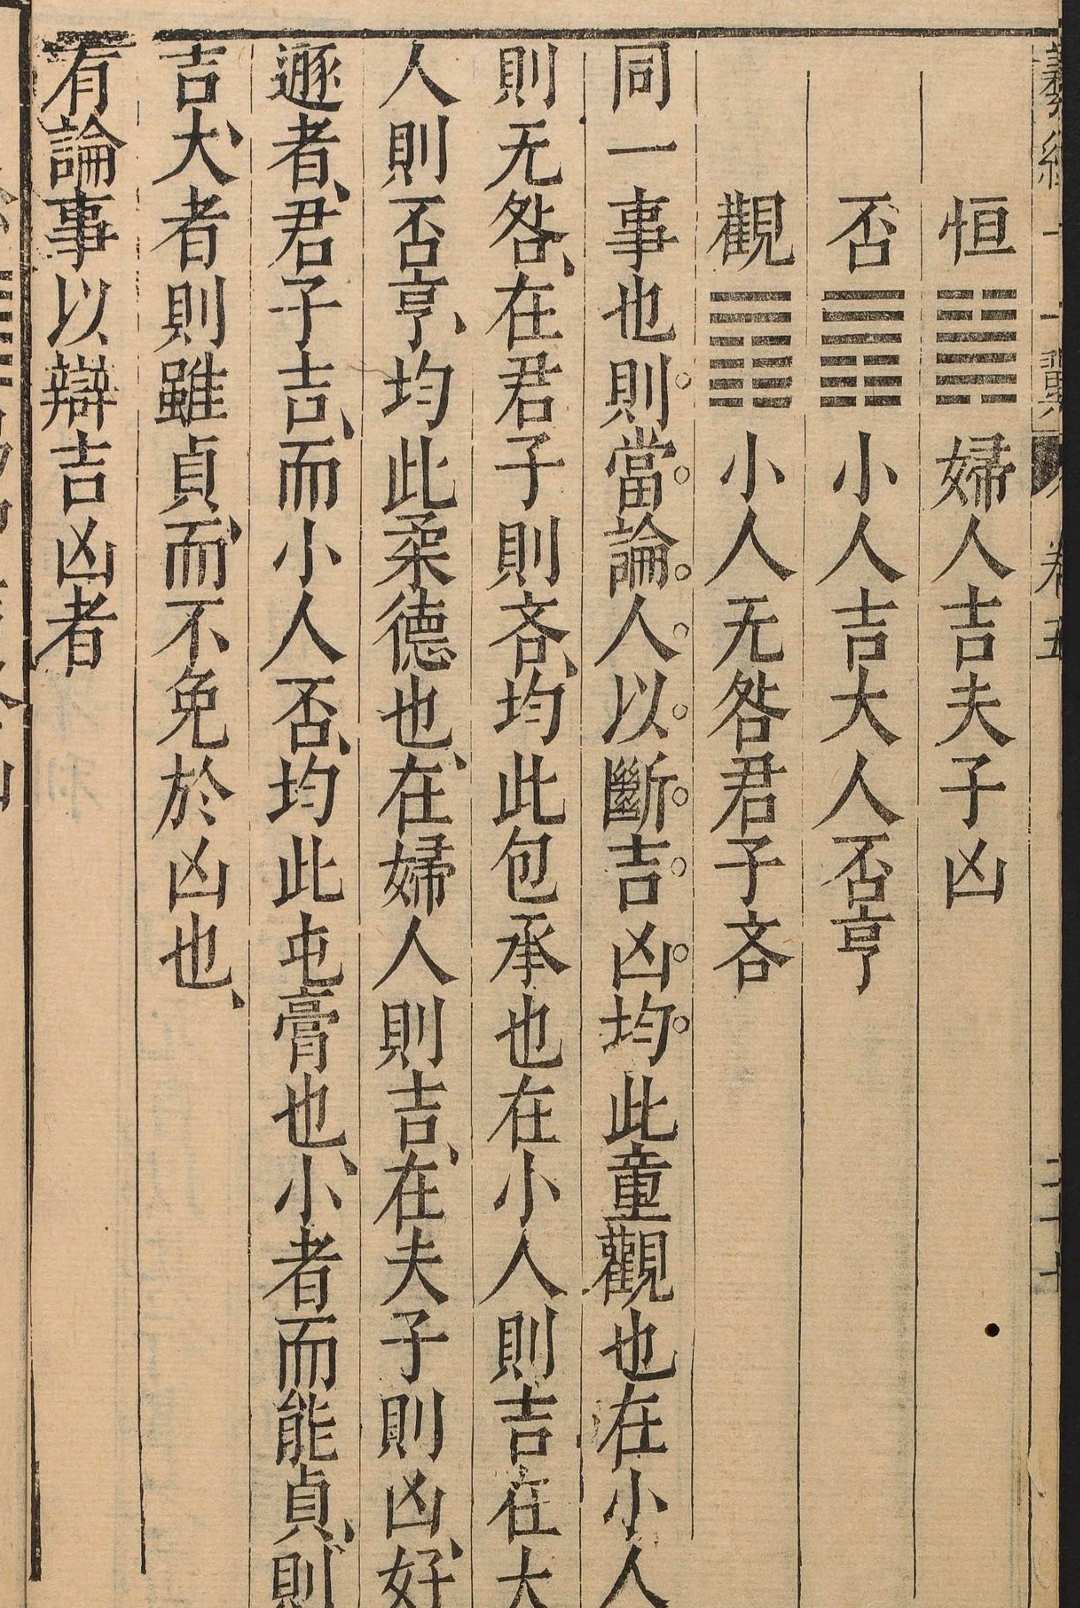 恒䷟婦人吉夫子凶
否䷋小人吉大人否亨
觀䷓小人无咎君子吝
同一事也則當論人以斷吉凶均此童觀也在小人
則无咎、在君子則吝、均此包承也在小人則吉在大
人則否亨、均此柔德也、在婦人則吉、在夫子則凶、好
遯者、君子吉、而小人否、均此屯膏也、小者而能貞、則
吉、大者則雖貞、而不免於凶也、
有論事以辯吉凶者